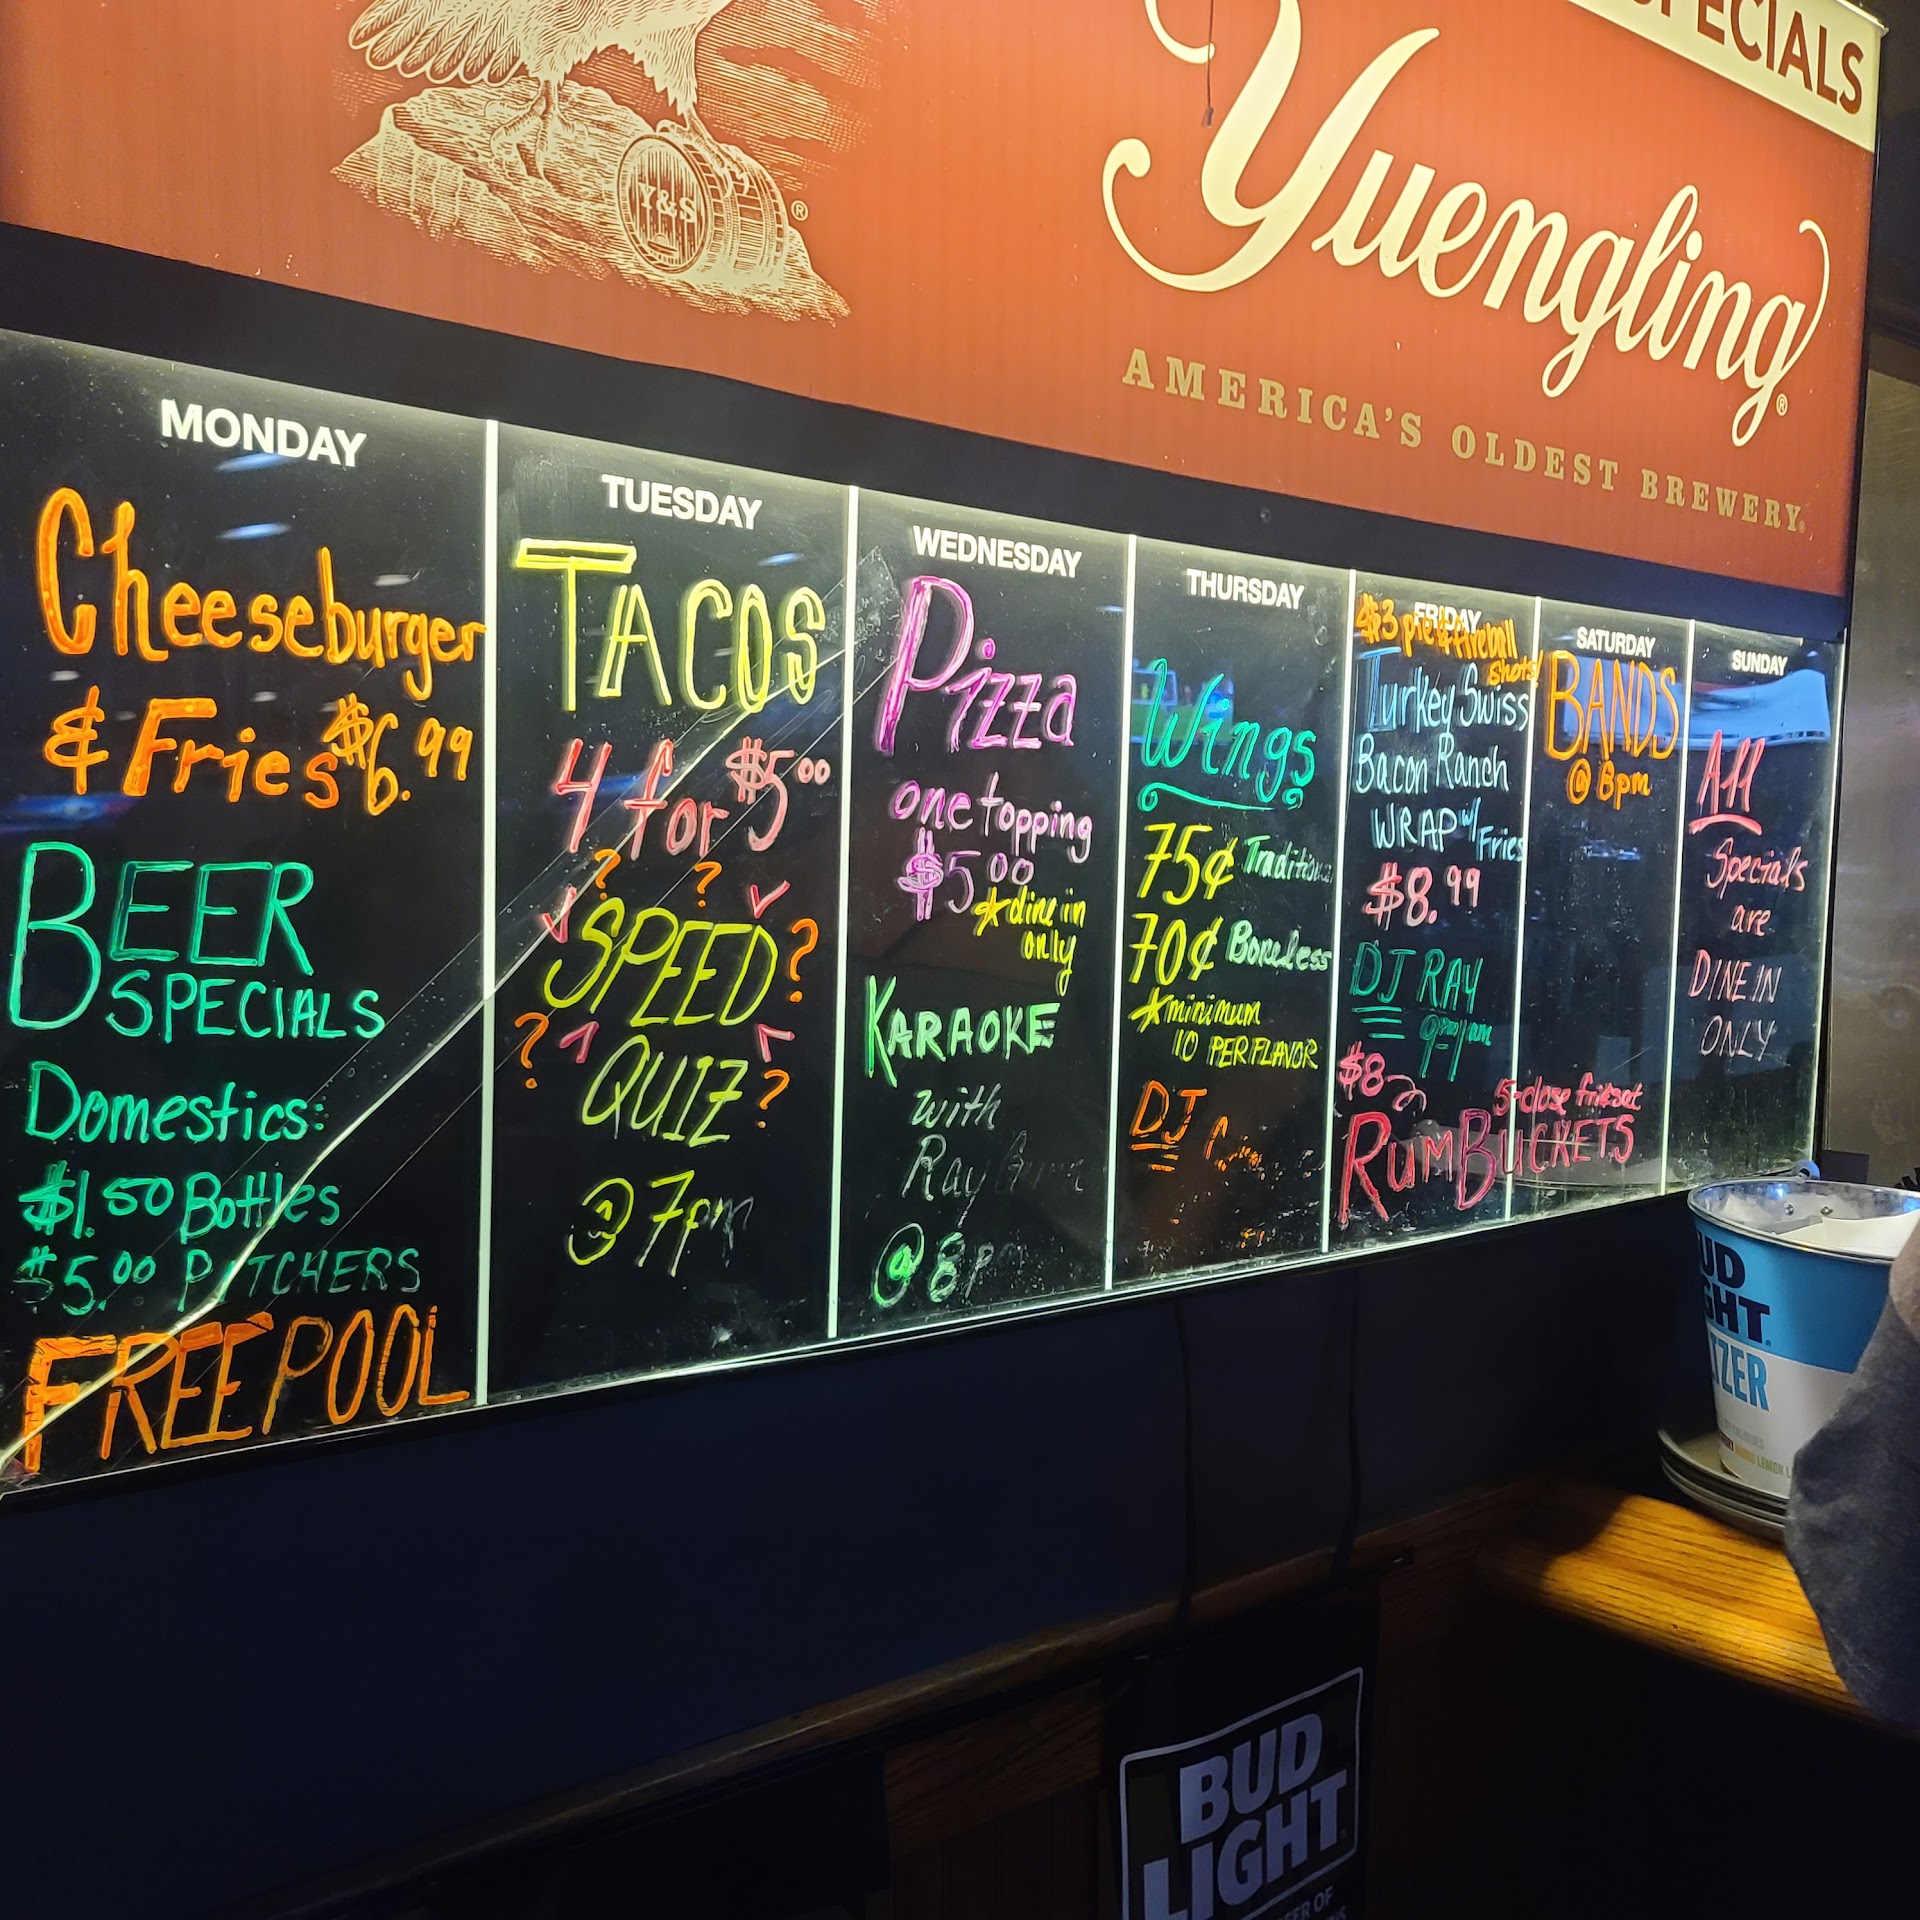 SPECIALS
Y&S
®
Yuengling®
AMERICA'S OLDEST BREWERY®
MONDAY
Cheeseburger
& Fries $6.99
BEER
SPECIALS
Domestics:
$1.50 Bottles
$5.00 PITCHERS
FREE POOL
TUESDAY
TACOS
4 for $5.00
? ?
SPEED ?
?
QUIZ ?
@ 7pm
WEDNESDAY
Pizza
one topping
$5.00
*dine in
only
KARAOKE
with
Ray
@ 8p
THURSDAY
Wings
75¢ Traditional
70¢ Boneless
*minimum
10 PER FLAVOR
DJ
FRIDAY
$3 Fireball
Shots!
Turkey Swiss
Bacon Ranch
WRAP w/ Fries
$8.99
DJ RAY
$8
5-close fri & sat
RUM BUCKETS
SATURDAY
BANDS
@ 8pm
SUNDAY
All
Specials
are
DINE IN
ONLY
BUD
LIGHT